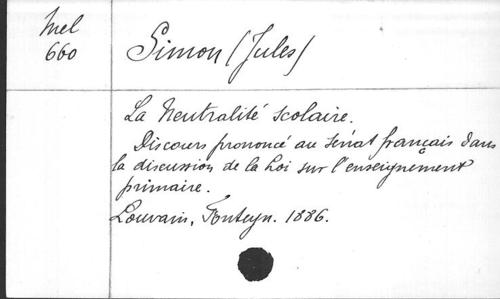 Mel
660
Simon (Jules)
La Neutralité scolaire.
Discours prononcé au Sénat français dans
la discussion de la Loi sur l'enseignement
primaire.
Louvain, Fonteyn. 1886.